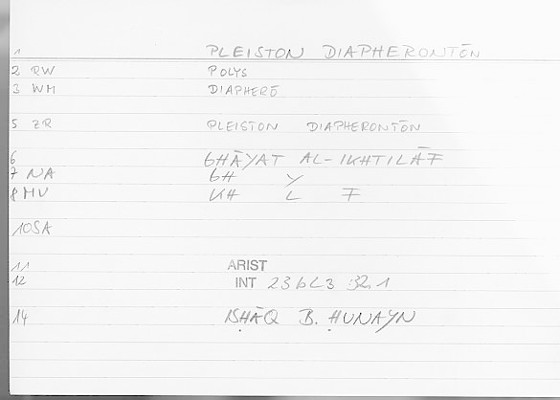 1 PLEISTON DIAPHERONTŌN
2 RW POLYS
3 WM DIAPHERŌ
5 ZR PLEISTON DIAPHERONTŌN
6 GHĀYAT AL-IKHTILĀF
7 NA GH Y
8 MV KH L F
10 SA
11 ARIST
12 INT 23 bL3 321
14 ISḤĀQ B. ḤUNAYN